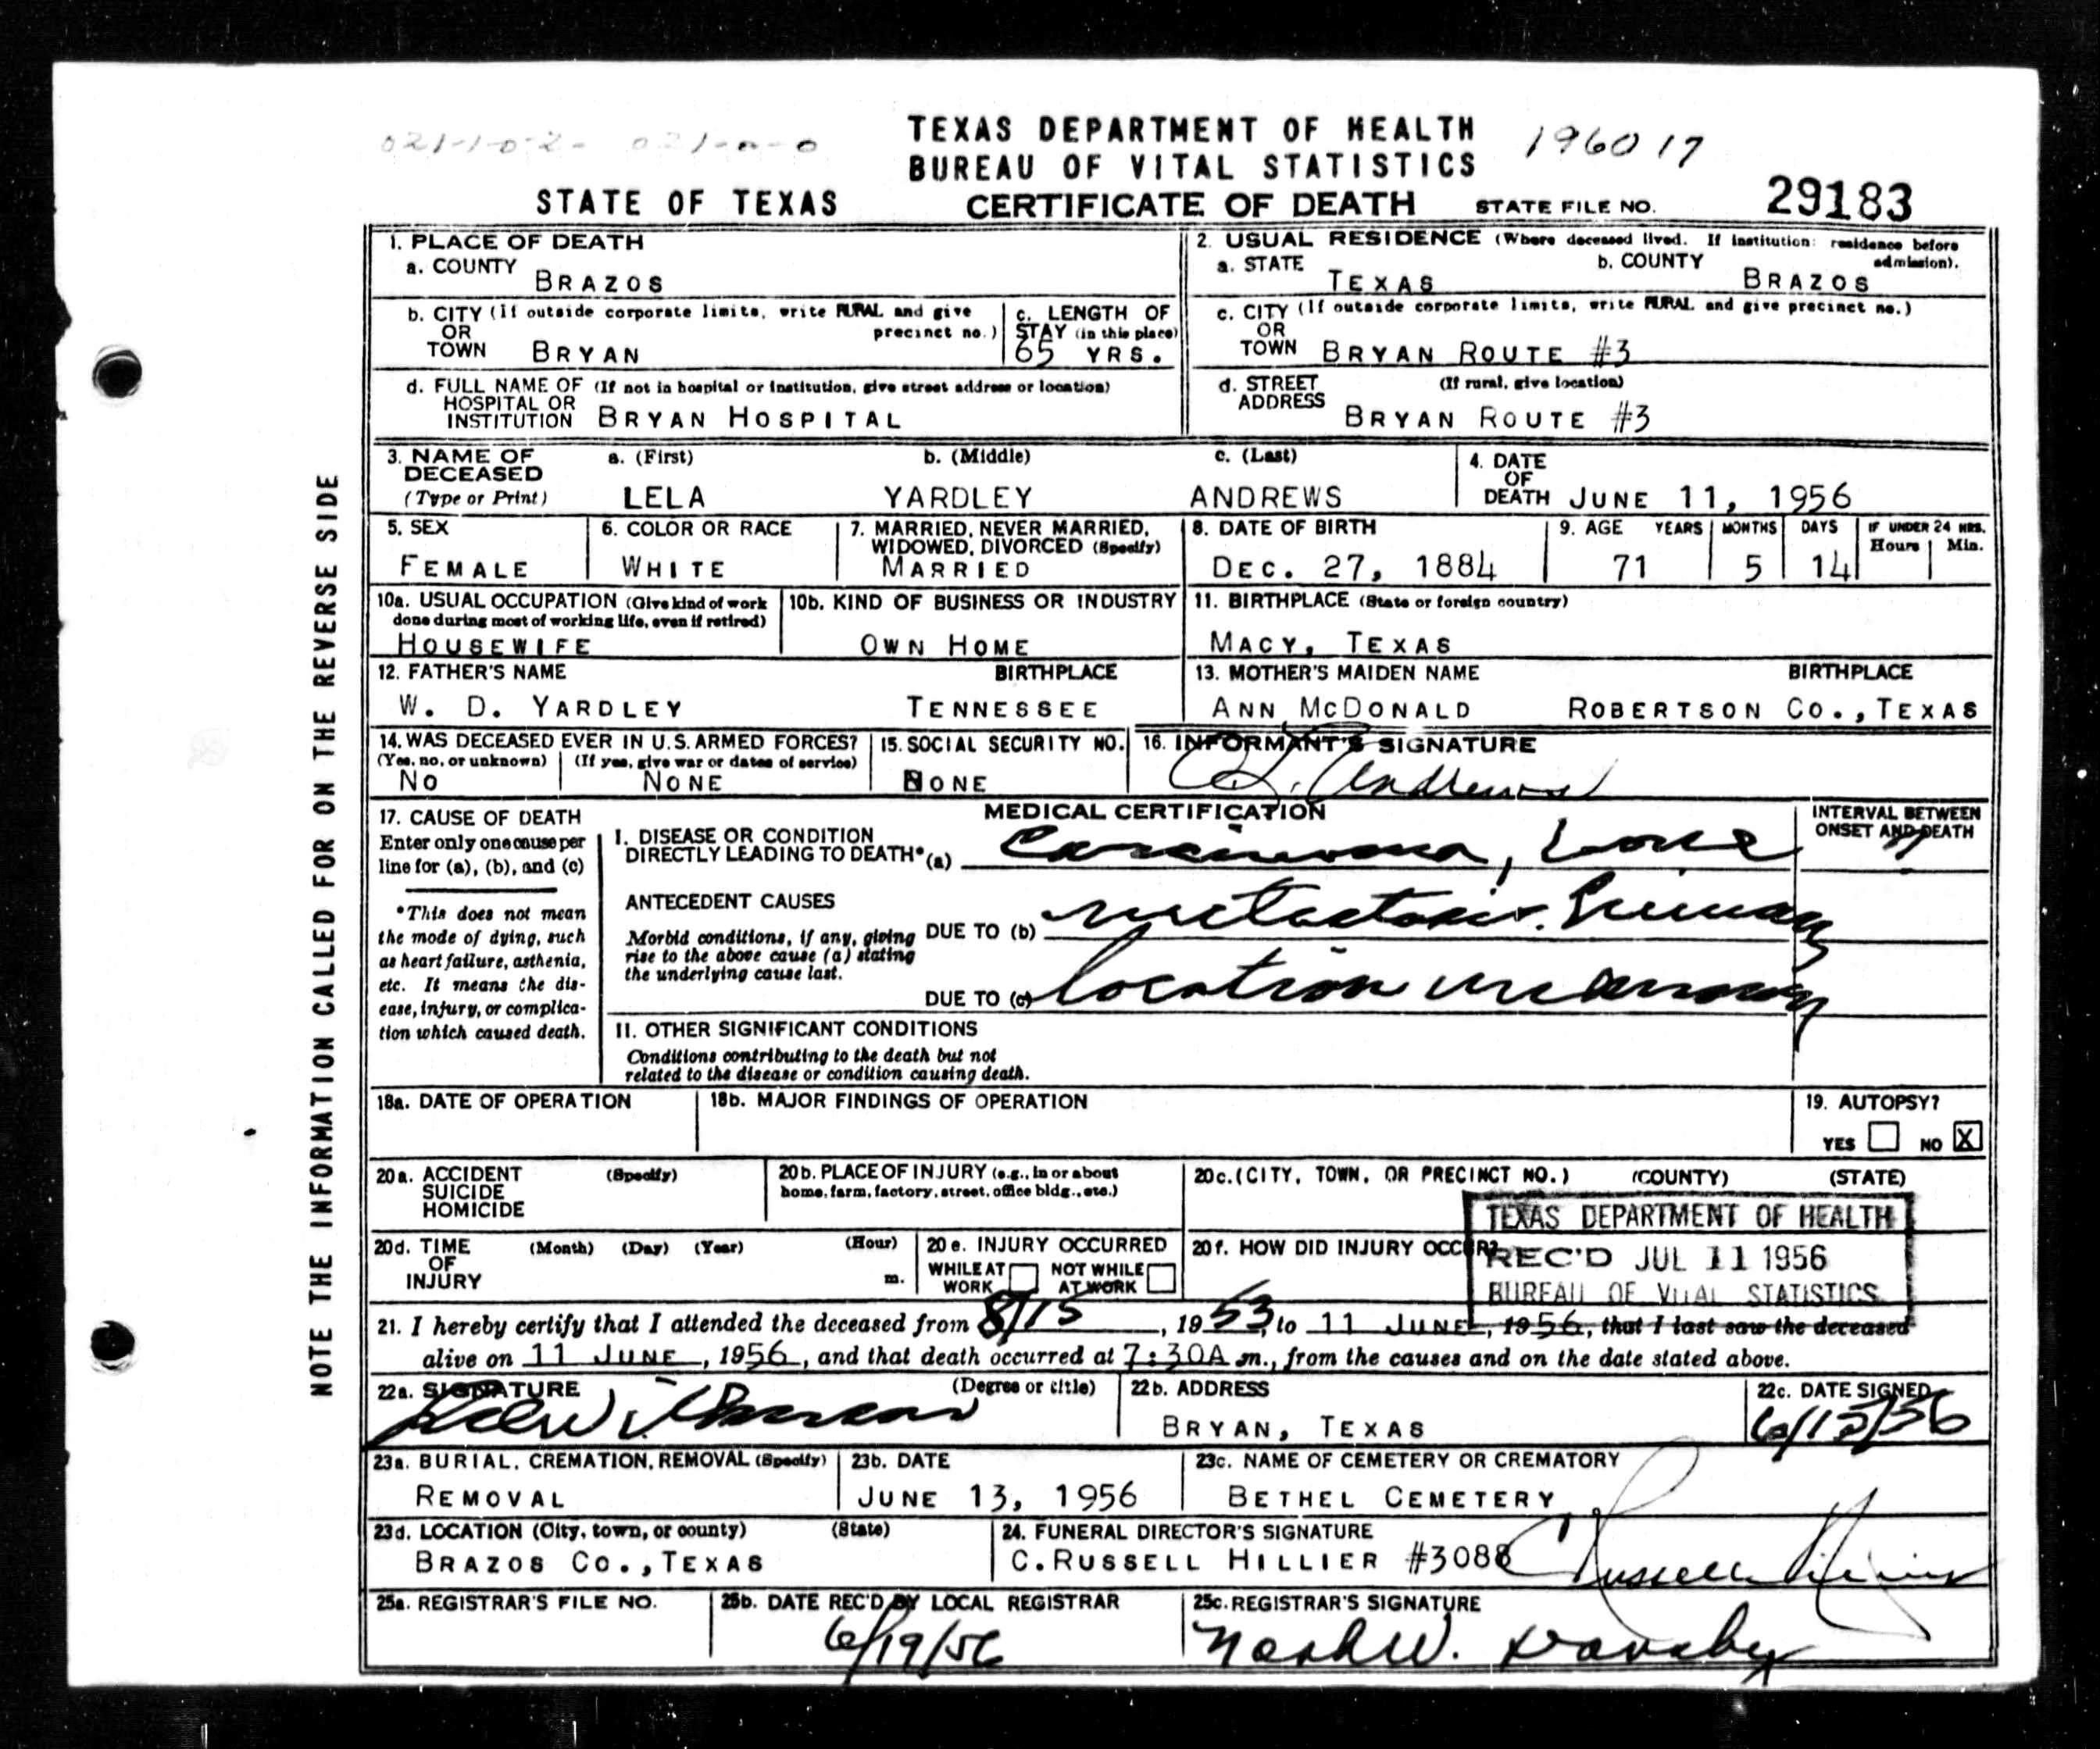 021-1-0-2- 021-0-0
TEXAS DEPARTMENT OF HEALTH
BUREAU OF VITAL STATISTICS
196017
STATE OF TEXAS
CERTIFICATE OF DEATH
STATE FILE NO. 29183
NOTE THE INFORMATION CALLED FOR ON THE REVERSE SIDE
1. PLACE OF DEATH
a. COUNTY
BRAZOS
2. USUAL RESIDENCE (Where deceased lived. If institution: residence before admission).
a. STATE
TEXAS
b. COUNTY
BRAZOS
b. CITY (If outside corporate limits, write RURAL and give
OR precinct no.)
TOWN BRYAN
c. LENGTH OF
STAY (in this place)
65 YRS.
c. CITY (If outside corporate limits, write RURAL and give precinct no.)
OR
TOWN BRYAN ROUTE #3
d. FULL NAME OF (If not in hospital or institution, give street address or location)
HOSPITAL OR
INSTITUTION BRYAN HOSPITAL
d. STREET (If rural, give location)
ADDRESS
BRYAN ROUTE #3
3. NAME OF DECEASED
(Type or Print)
a. (First)
LELA
b. (Middle)
YARDLEY
c. (Last)
ANDREWS
4. DATE
OF
DEATH JUNE 11, 1956
5. SEX
FEMALE
6. COLOR OR RACE
WHITE
7. MARRIED, NEVER MARRIED,
WIDOWED, DIVORCED (Specify)
MARRIED
8. DATE OF BIRTH
DEC. 27, 1884
9. AGE YEARS MONTHS DAYS IF UNDER 24 HRS.
Hours Min.
71 5 14
10a. USUAL OCCUPATION (Give kind of work
done during most of working life, even if retired)
HOUSEWIFE
10b. KIND OF BUSINESS OR INDUSTRY
OWN HOME
11. BIRTHPLACE (State or foreign country)
MACY, TEXAS
12. FATHER'S NAME BIRTHPLACE
W. D. YARDLEY TENNESSEE
13. MOTHER'S MAIDEN NAME BIRTHPLACE
ANN MCDONALD ROBERTSON CO., TEXAS
14. WAS DECEASED EVER IN U.S. ARMED FORCES?
(Yes, no, or unknown) (If yes, give war or dates of service)
NO NONE
15. SOCIAL SECURITY NO.
NONE
16. INFORMANT'S SIGNATURE
L. Andrews
17. CAUSE OF DEATH
Enter only one cause per
line for (a), (b), and (c)
*This does not mean
the mode of dying, such
as heart failure, asthenia,
etc. It means the dis-
ease, injury, or complica-
tion which caused death.
MEDICAL CERTIFICATION
INTERVAL BETWEEN
ONSET AND DEATH
I. DISEASE OR CONDITION
DIRECTLY LEADING TO DEATH* (a) Carcinoma,
ANTECEDENT CAUSES
Morbid conditions, if any, giving
rise to the above cause (a) stating
the underlying cause last.
DUE TO (b) metastasis. Primary
DUE TO (c) location unknown
II. OTHER SIGNIFICANT CONDITIONS
Conditions contributing to the death but not
related to the disease or condition causing death.
18a. DATE OF OPERATION
18b. MAJOR FINDINGS OF OPERATION
19. AUTOPSY?
YES NO X
20a. ACCIDENT (Specify)
SUICIDE
HOMICIDE
20b. PLACE OF INJURY (e.g., in or about
home, farm, factory, street, office bldg., etc.)
20c. (CITY, TOWN, OR PRECINCT NO.) (COUNTY) (STATE)
20d. TIME (Month) (Day) (Year) (Hour)
OF
INJURY m.
20e. INJURY OCCURRED
WHILE AT WORK NOT WHILE AT WORK
20f. HOW DID INJURY OCCUR?
TEXAS DEPARTMENT OF HEALTH
REC'D JUL 11 1956
BUREAU OF VITAL STATISTICS
21. I hereby certify that I attended the deceased from 8/15, 1953, to 11 JUNE, 1956, that I last saw the deceased
alive on 11 JUNE, 1956, and that death occurred at 7:30A m., from the causes and on the date stated above.
22a. SIGNATURE (Degree or title)
22b. ADDRESS
BRYAN, TEXAS
22c. DATE SIGNED
23a. BURIAL, CREMATION, REMOVAL (Specify)
REMOVAL
23b. DATE
JUNE 13, 1956
23c. NAME OF CEMETERY OR CREMATORY
BETHEL CEMETERY
23d. LOCATION (City, town, or county) (State)
BRAZOS CO., TEXAS
24. FUNERAL DIRECTOR'S SIGNATURE
C. RUSSELL HILLIER #3088 C Russell Hillier
25a. REGISTRAR'S FILE NO.
25b. DATE REC'D BY LOCAL REGISTRAR
6/19/56
25c. REGISTRAR'S SIGNATURE